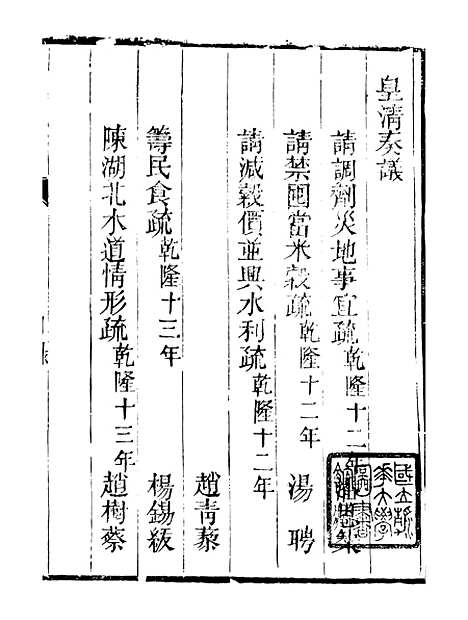 皇清奏議
請調劑災地事宜疏 乾隆十二年
請禁囤當米穀疏 乾隆十二年 湯聘
請減穀價並興水利疏 乾隆十二年
趙青藜
籌民食疏 乾隆十三年 楊錫紱
陳湖北水道情形疏 乾隆十三年 趙樹蔡